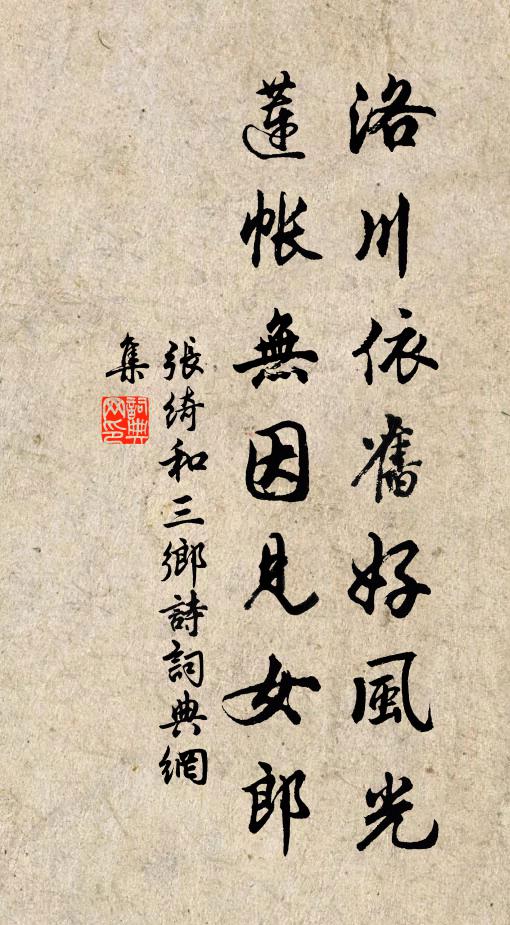 洛川依舊好風光
蓮帳無因見女郎
張綺和三鄉詩詞典網
集
詞典網印